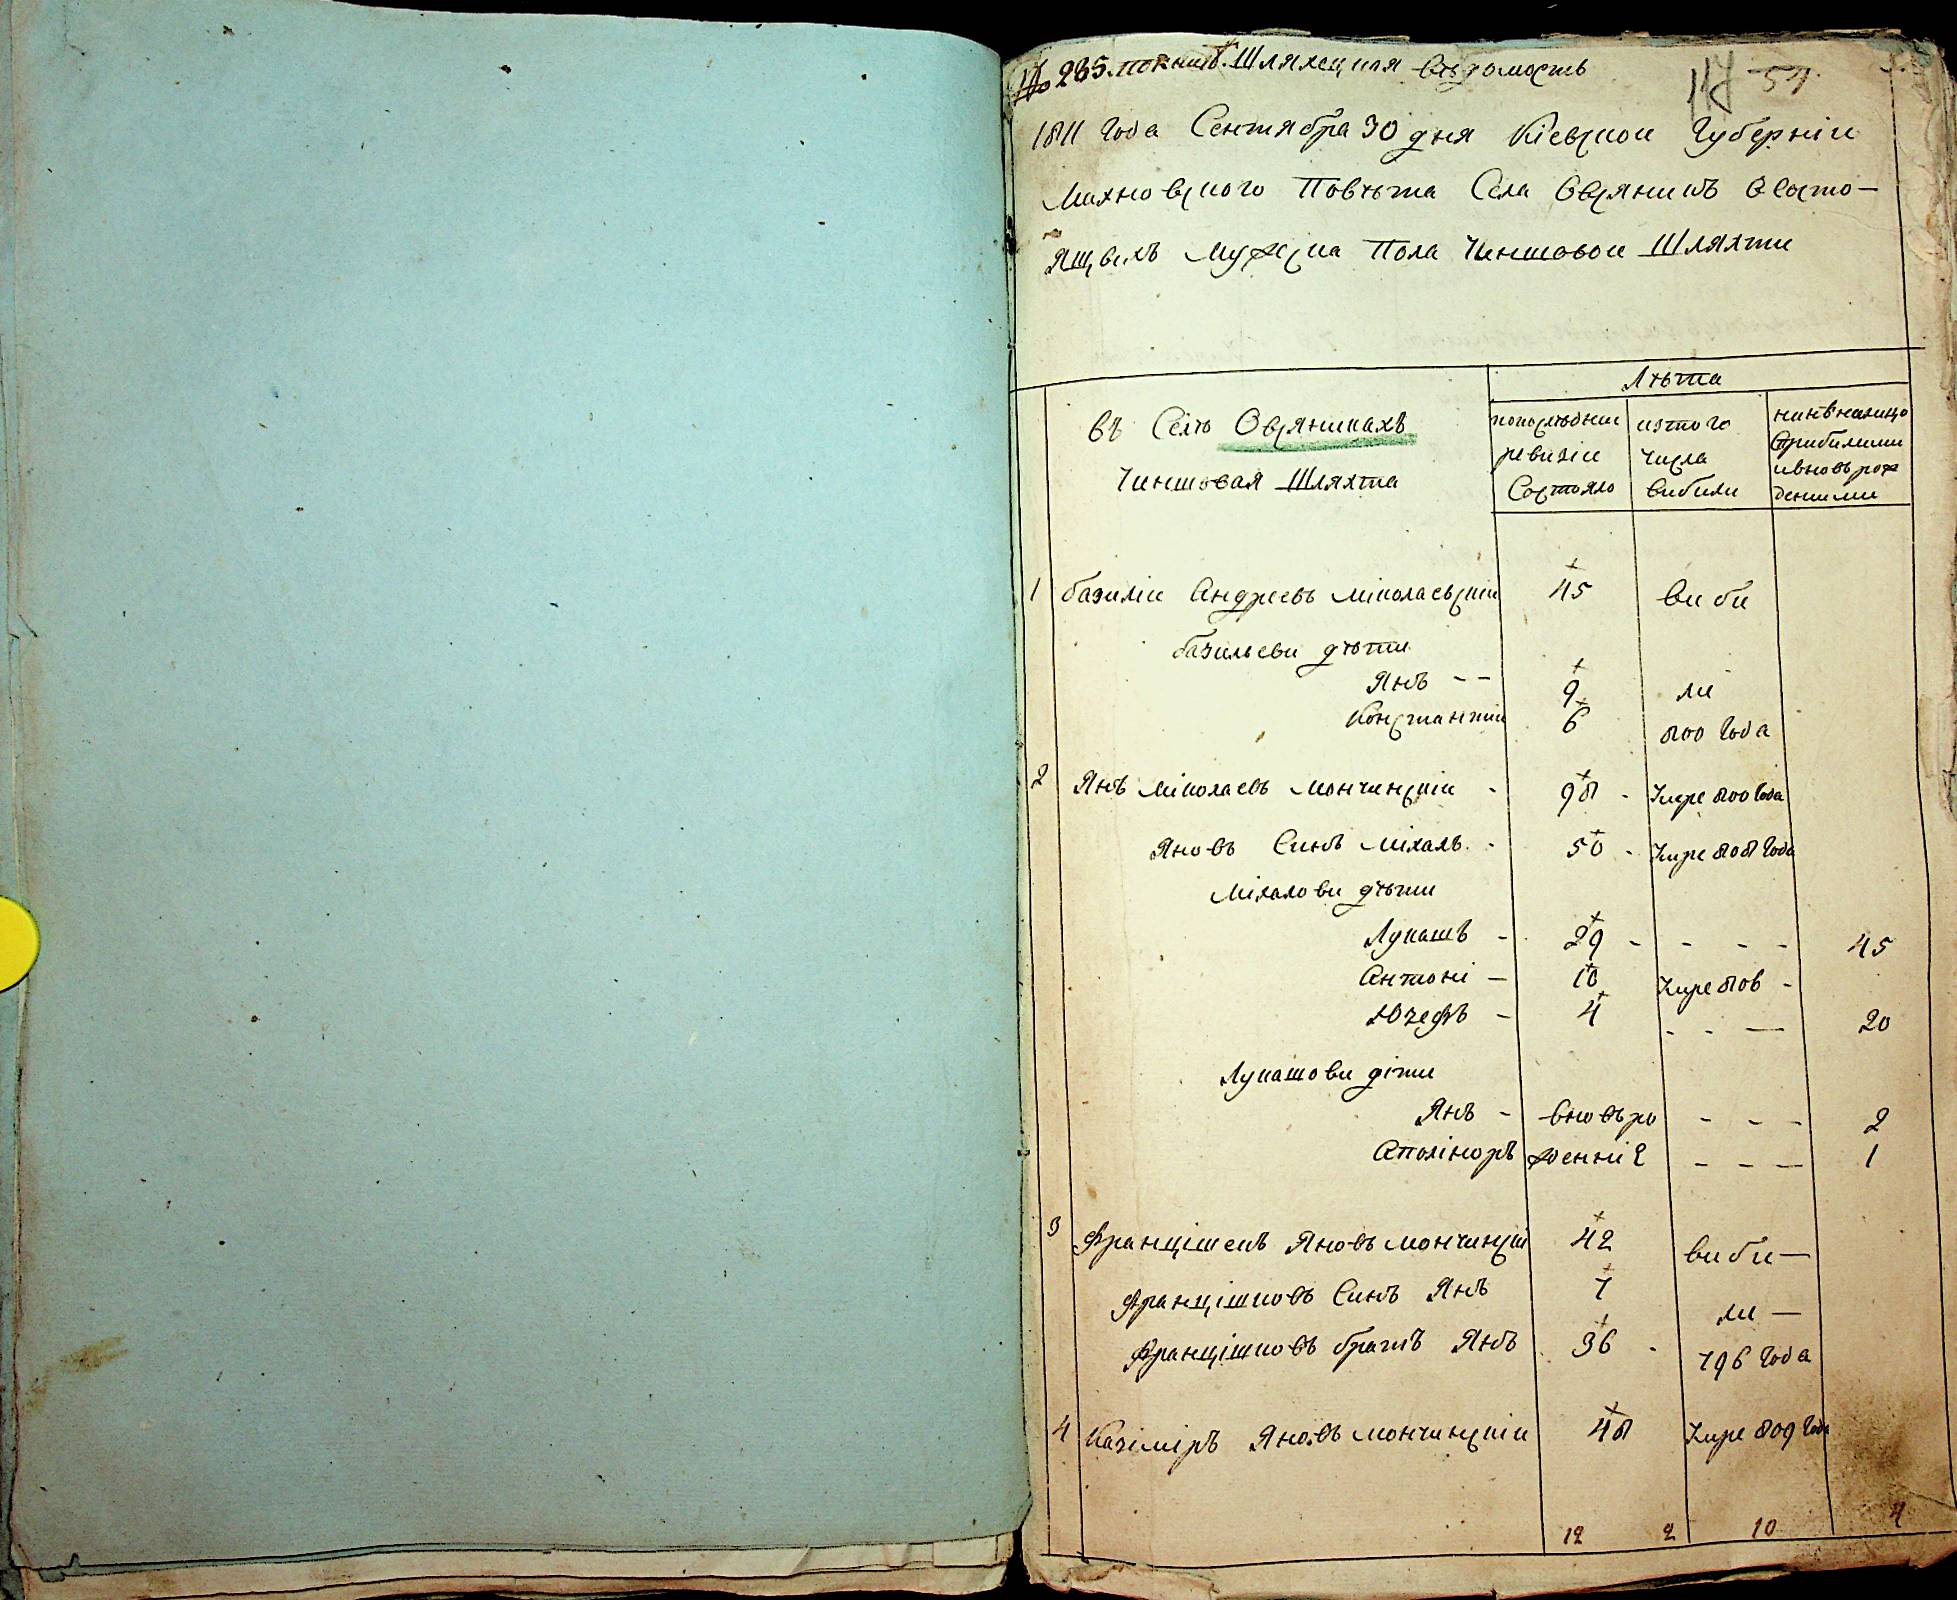 № 235. по книг. Шляхецкая вѣдомость
117 54.
1811 Года Сентября 30 дня Кіевской Губерніи
Махновского Повѣта Села Овсяникъ о состо-
ящихъ мужска Пола Чиншовои Шляхти
Лѣта
въ Селѣ Овсяникахъ
Чиншовая Шляхта
попослѣднеи ревизіи Состояло
изтого числа вибили
нинѣ налицо сприбилими ивновь рожденними
1 Базиліи Андреевъ Міколаевскіи 45 виби
Базильеви дѣти
Янъ - - 9 ли
Константіи 6 800 Года
2 Янъ Міколаевъ Мончинскіи - 98 - Умре 800 Года
Яновъ Синъ Міхалъ - 50 - Умре 808 Года
Міхалови дѣти
Лукашъ - 29 - - - - 45
Антоні - 10 Умре 806 -
Юзефъ - 4 - - - 20
Лукашови діти
Янъ - вновь ро - - - 2
Аполіноръ жденніе - - - 1
3 Францішекъ Яновъ Мончинскіи 42 виби-
Францішковъ Синъ Янъ 7 ли -
Францішковъ братъ Янъ 36 - 796 Года
4 Казіміръ Яновъ Мончинскіи 48 Умре 809 Года
12 2 10 4